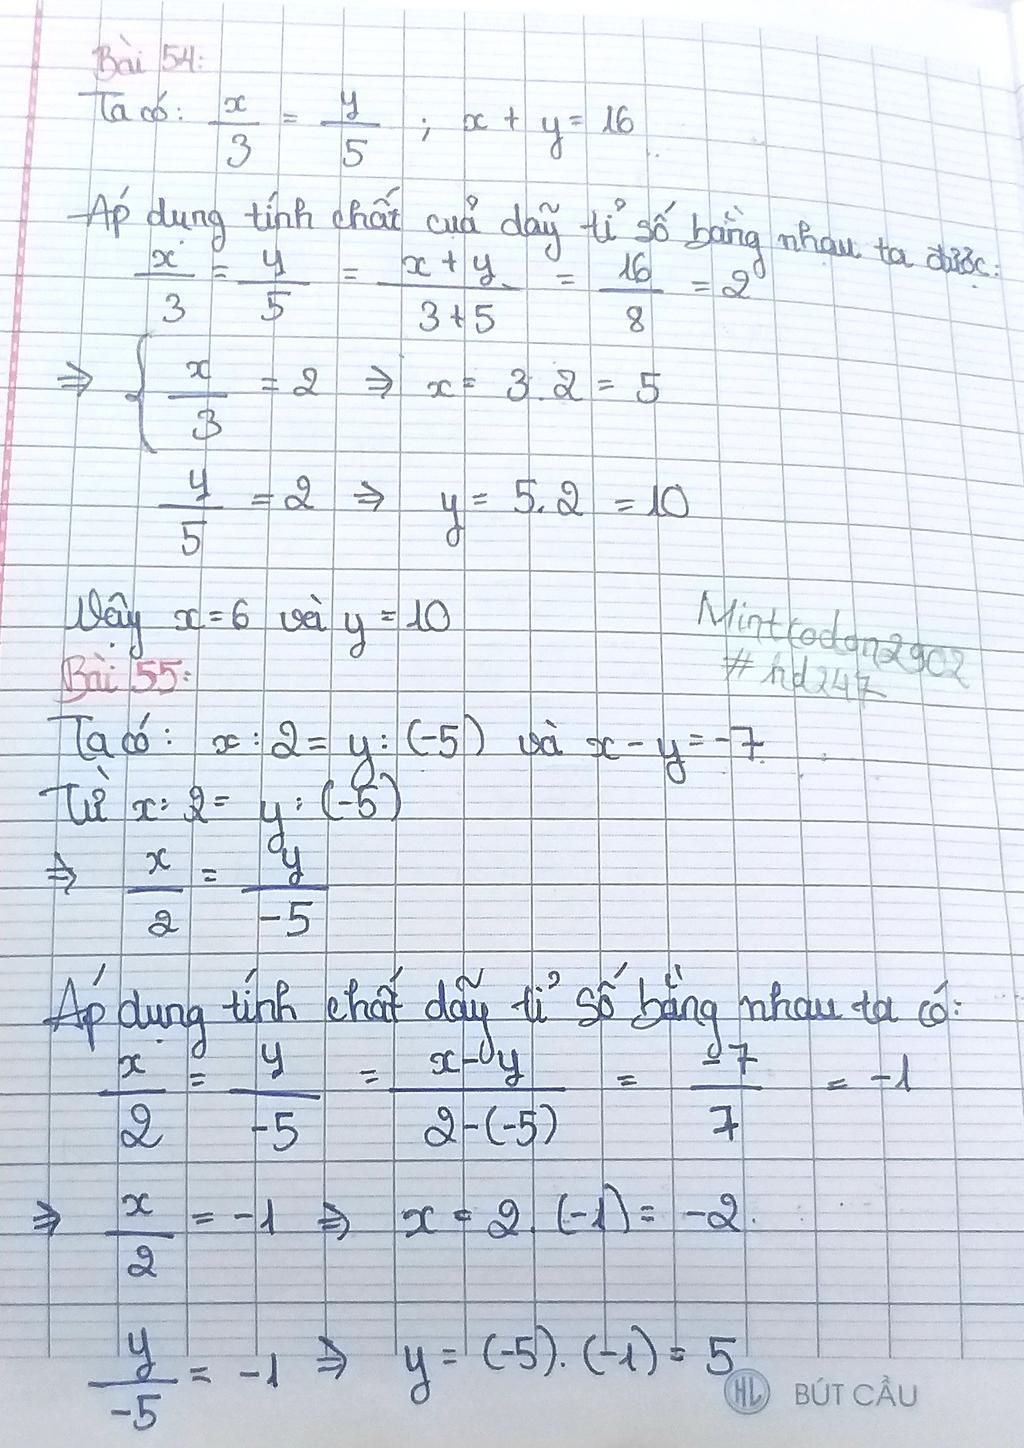 Bài 54:
Ta có: x/3 = y/5 ; x + y = 16
Áp dụng tính chất cuả dãy tỉ số bằng nhau ta được:
x/3 = y/5 = (x + y)/(3+5) = 16/8 = 2
⇒ { x/3 = 2 ⇒ x = 3.2 = 5
y/5 = 2 ⇒ y = 5.2 = 10
Vậy x = 6 và y = 10
Bài 55:
Ta có: x : 2 = y : (-5) và x - y = -7
Từ x : 2 = y : (-5)
⇒ x/2 = y/-5
Áp dụng tính chất dãy tỉ số bằng nhau ta có:
x/2 = y/-5 = (x-y)/(2-(-5)) = -7/7 = -1
⇒ x/2 = -1 ⇒ x = 2.(-1) = -2.
y/-5 = -1 ⇒ y = (-5).(-1) = 5
#hd247
HL BÚT CẦU